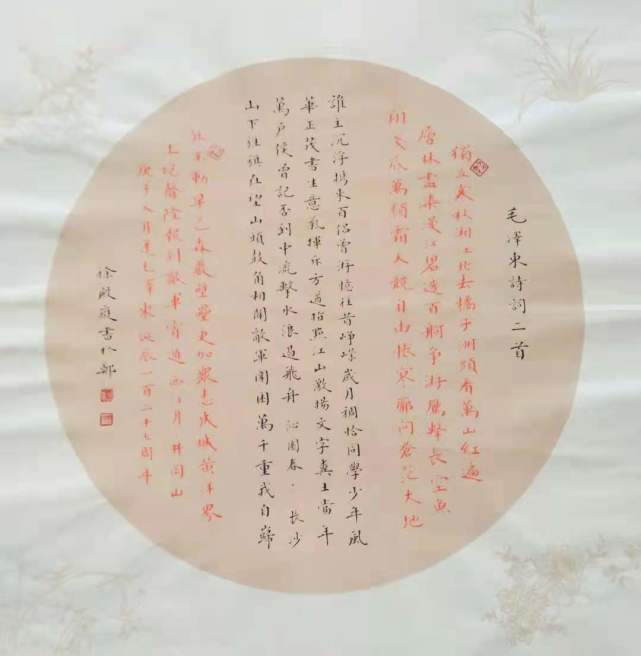 毛澤東詩詞二首
獨立寒秋湘江北去橘子洲頭看萬山紅遍
層林盡染漫江碧透百舸爭流鷹擊長空魚
翔淺底萬類霜天競自由悵寥廓問蒼茫大地
誰主沉浮攜來百侣曾游憶往昔崢嶸歲月稠恰同學少年風
華正茂書生意氣揮斥方遒指點江山激揚文字糞土當年
萬户侯曾記否到中流擊水浪遏飛舟 沁園春·長沙
山下旌旗在望山頭鼓角相聞敵軍圍困萬千重我自巋
然不動早已森嚴壁壘更加衆志成城黄洋界
上炮聲隆報到敵軍宵遁 西江月 井岡山
庚子八月 毛澤東誕辰一百二十七周年
徐 庭書於鄭